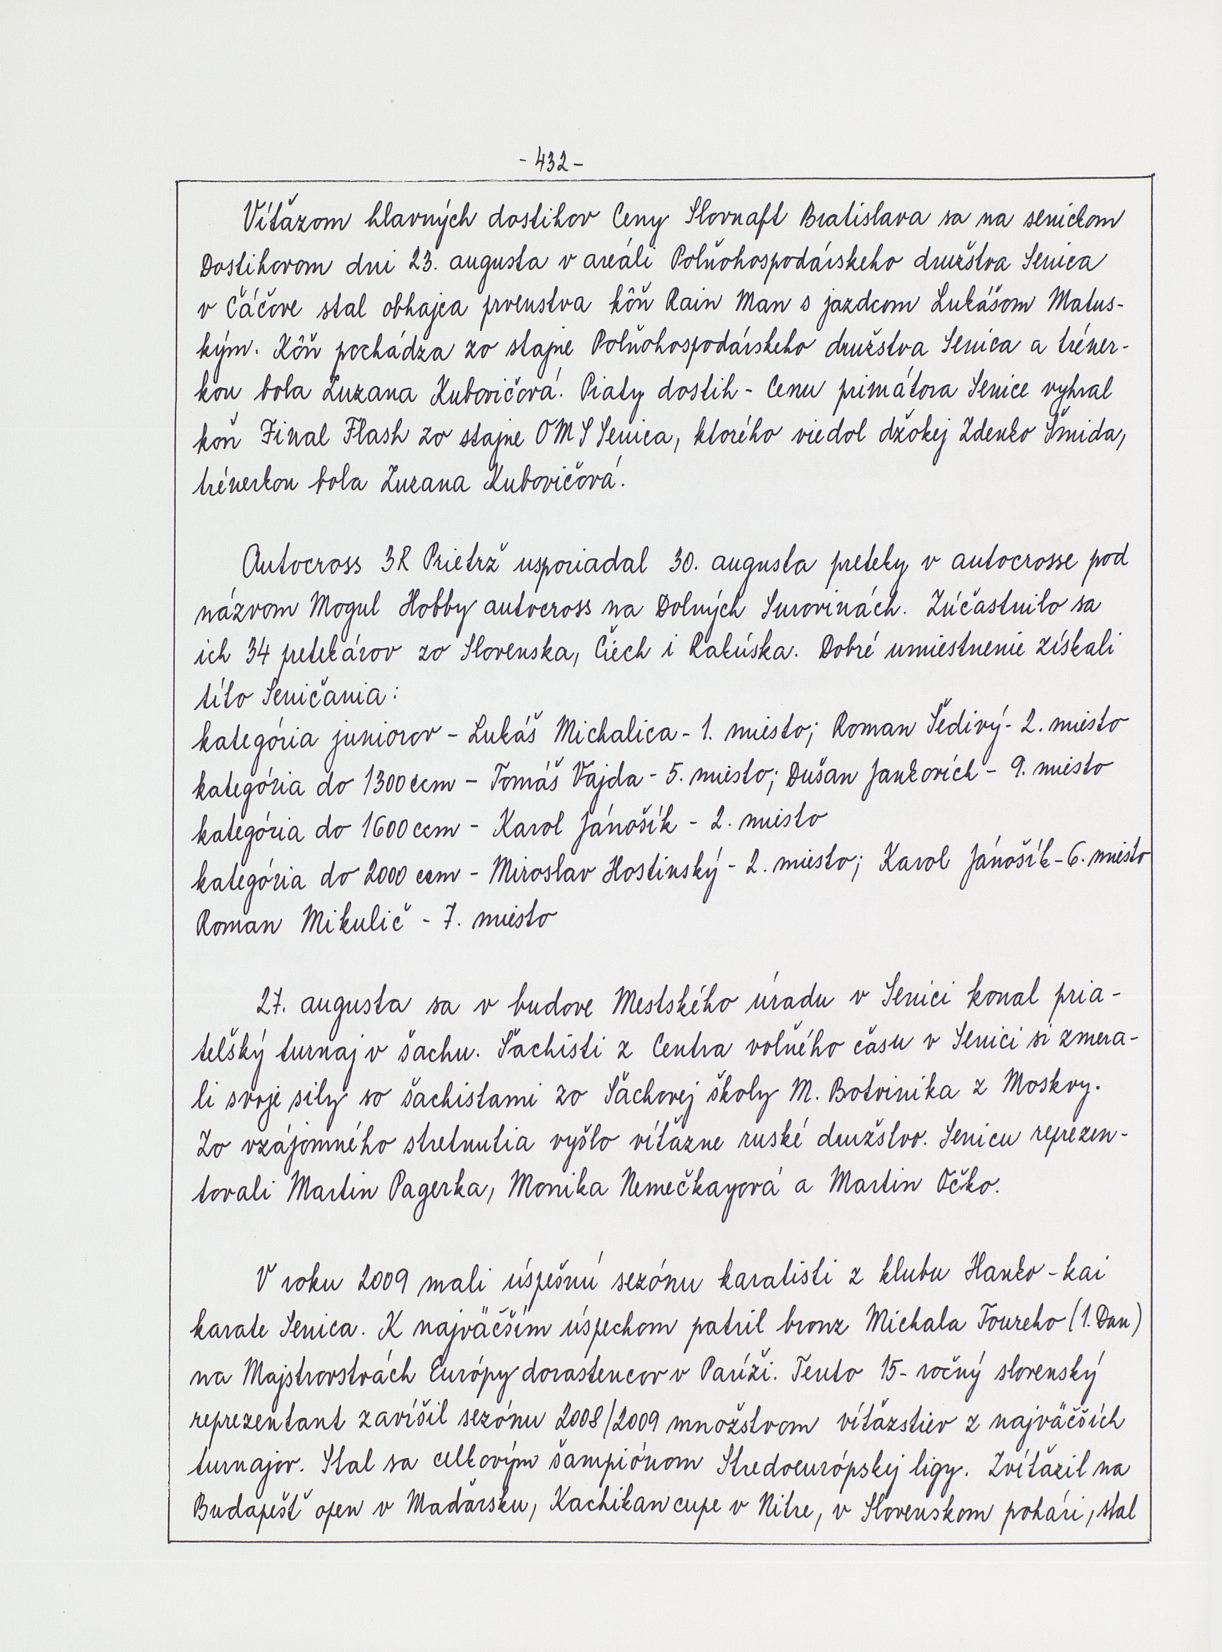 - 432 -
Víťazom hlavných dostihov Ceny Slovnaft Bratislava sa na senickom
Dostihovom dni 23. augusta v areáli Poľnohospodárskeho družstva Senica
v Čáčove stal obhajca prvenstva kôň Rain Man s jazdcom Lukášom Matus-
kým. Kôň pochádza zo stajne Poľnohospodárskeho družstva Senica a tréner-
kou bola Zuzana Kubovičová. Piaty dostih - Cenu primátora Senice vyhral
koň Final Flash zo stajne OMS Senica, ktorého viedol džokej Zdenko Šmida,
trénerkou bola Zuzana Kubovičová.
Autocross 3R Prietrž usporiadal 30. augusta preteky v autocrosse pod
názvom Mogul Hobby autocross na Dolných Surovinách. Zúčastnilo sa
ich 34 pretekárov zo Slovenska, Čiech i Rakúska. Dobré umiestnenie získali
títo Seničania:
kategória juniorov - Lukáš Michalica - 1. miesto; Roman Šedivý - 2. miesto
kategória do 1300 ccm - Tomáš Vajda - 5. miesto; Dušan Jankovích - 9. miesto
kategória do 1600 ccm - Karol Jánošík - 2. miesto
kategória do 2000 ccm - Miroslav Hostinský - 2. miesto; Karol Jánošík - 6. miesto
Roman Mikulič - 7. miesto
27. augusta sa v budove Mestského úradu v Senici konal pria-
teľský turnaj v šachu. Šachisti z Centra voľného času v Senici si zmera-
li svoje sily so šachistami zo Šachovej školy M. Botvinika z Moskvy.
Zo vzájomného stretnutia vyšlo víťazne ruské družstvo. Senicu reprezen-
tovali Martin Pagerka, Monika Nemečkayová a Martin Očko.
V roku 2009 mali úspešnú sezónu karatisti z klubu Hanko-kai
karate Senica. K najväčším úspechom patril bronz Michala Toureho (1. Dan)
na Majstrovstvách Európy dorastencov v Paríži. Tento 15-ročný slovenský
reprezentant zavŕšil sezónu 2008/2009 množstvom víťazstiev z najväčších
turnajov. Stal sa celkovým šampiónom Stredoeurópskej ligy. Zvíťazil na
Budapešť open v Maďarsku, Kachikan cupe v Nitre, v Slovenskom pohári, stal